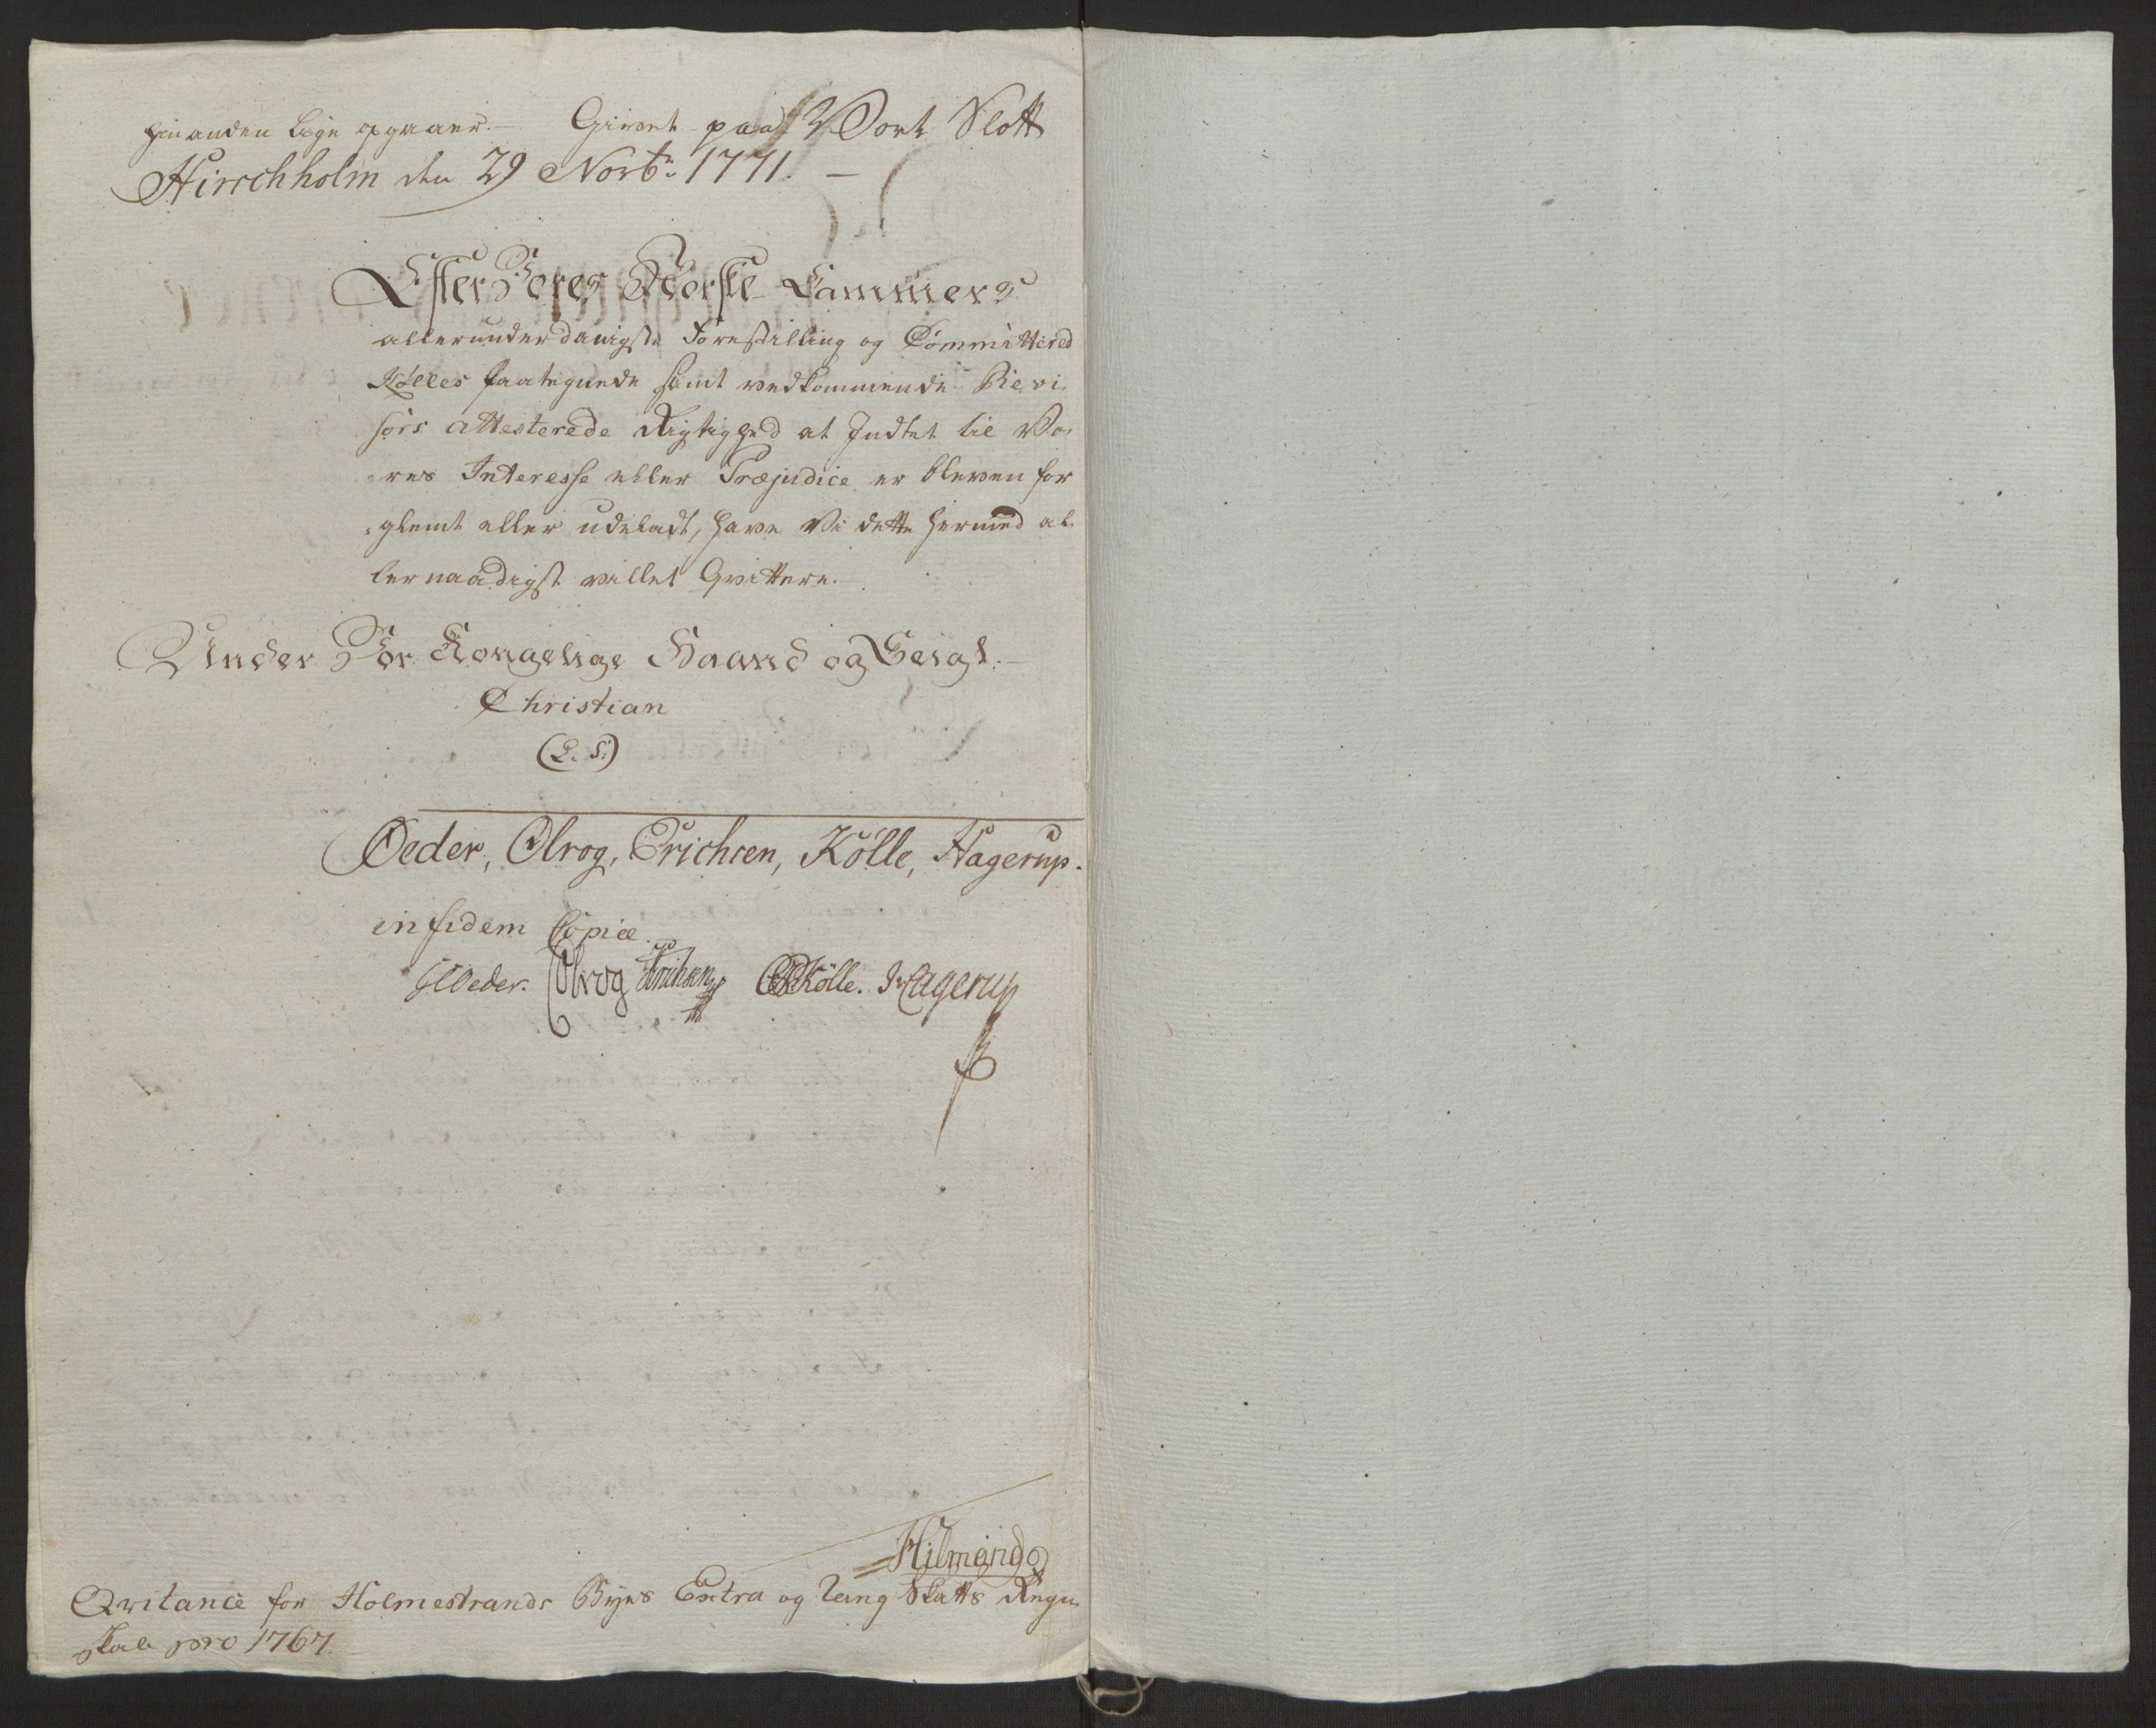 hinanden lige opgaaer. – Givet paa Vort Slott
Hirschholm den 29 Novbr. 1771. –
Efter Vores Norske Cammers
allerunderdanigste Forestilling og Committered
Kølles paategnede samt vedkommende Revi
sors attesterede Rigtighed at Indtet til Vo
res Interesse eller Præjudice er bleven for
glemt eller udeladt, have Vi dette hermed al
lernaadigst villet Qvittere. –
Under Vor Kongelige Haand og Seigl. –
Christian
(L. S.)
Oeder, Olrog, Erichsen, Kölle, Hagerup.
in fidem Copiæ.
Oeder. Olrog Erichsen Kölle. Hagerup
Hilmand
Qvitance for Holmestrands Byes Extra og Tang Skatts Regn
skab pro 1767.